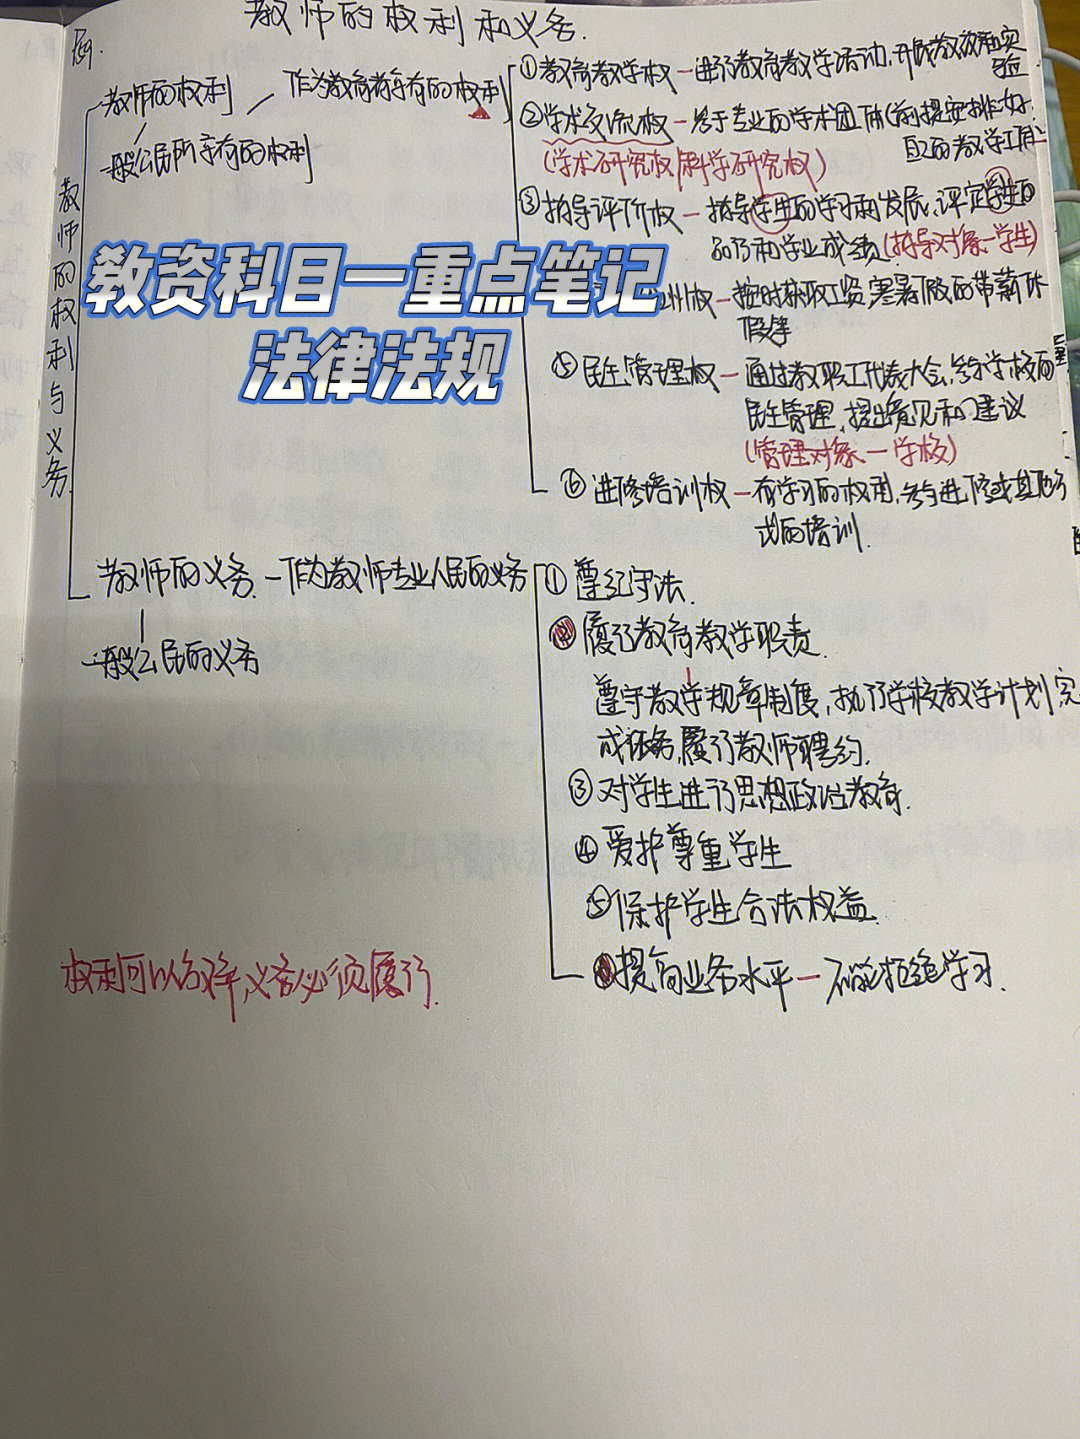 教师的权利和义务.
教师的权利与义务
教师的权利
作为教育者享有的权利
一般公民所享有的权利
①教育教学权—进行教育教学活动,开展教改和实
验
②学术交流权—参于专业的学术团体(前提安排好
自己的教学工作
(学术研究权/科学研究权)
③指导评价权—指导学生的学习和发展,评定学生的
品行和学业成绩(指导对象—学生)
教资科目一重点笔记
法律法规
酬权—按时获取工资,寒暑假的带薪休
假等
⑤民主管理权—通过教职工代表大会,参与学校的
民主管理,提出意见和建议
(管理对象—学校)
⑥进修培训权—有学习的权利,参与进修或其他方
式的培训.
教师的义务—作为教师专业人民的义务
一般公民的义务
①遵纪守法.
②履行教育教学职责.
遵守教学规章制度,执行学校教学计划完
成任务,履行教师聘约.
③对学生进行思想政治教育.
④爱护尊重学生
⑤保护学生合法权益
⑥提高业务水平—不能拒绝学习.
权利可以放弃,义务必须履行.